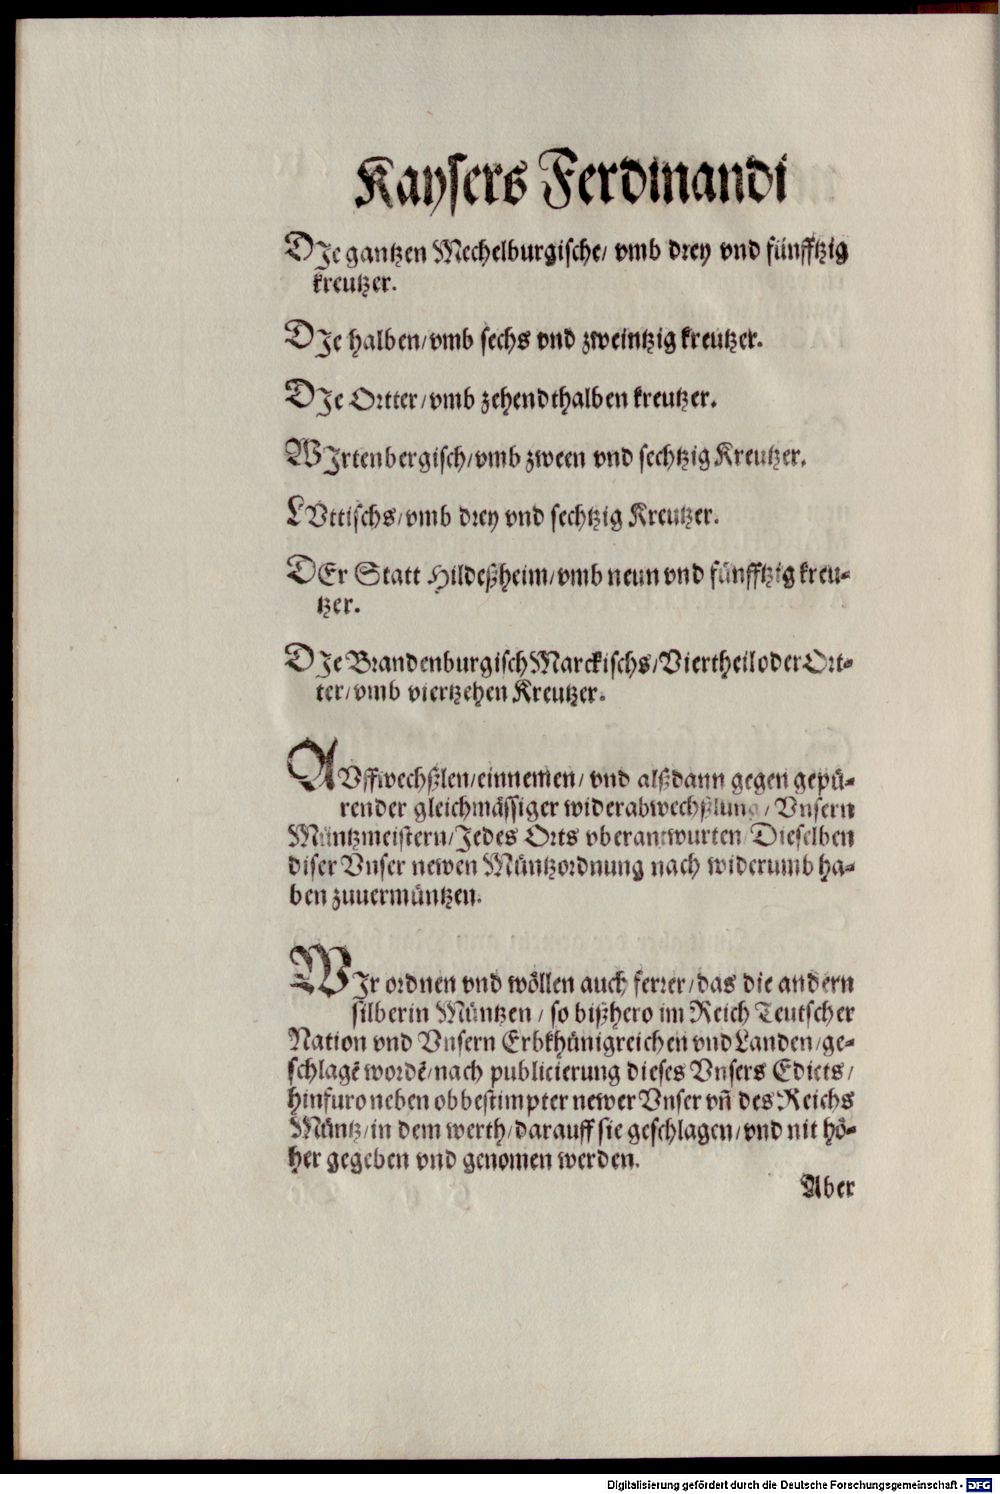 Kaysers Ferdinandi
DIe gantzen Mechelburgische/ vmb drey vnd fünfftzig
kreutzer.
DIe halben/vmb sechs vnd zweintzig kreutzer.
DIe Ortter/vmb zehendthalben kreutzer.
WIrtenbergisch/vmb zween vnd sechtzig Kreutzer.
LVttischs/vmb drey vnd sechtzig Kreutzer.
DEr Statt Hildeßheim/vmb neun vnd fünfftzig kreu-
tzer.
DIe Brandenburgisch Marckischs/Viertheil oder Ort-
ter/vmb viertzehen Kreutzer.
AVffwechßlen/einnemen/ vnd alßdann gegen gepü-
render gleichmässiger widerabwechßlung/ Vnsern
Müntzmeistern/Jedes Orts vberantwurten/Dieselben
diser Vnser newen Müntzordnung nach widerumb ha-
ben zuuermüntzen.
WIr ordnen vnd wöllen auch ferrer/das die andern
silberin Müntzen/ so bißhero im Reich Teutscher
Nation vnd Vnsern Erbkhünigreichen vnd Landen/ge-
schlagẽ wordẽ/nach publicierung dieses Vnsers Edicts/
hinfuro neben obbestimpter newer Vnser vñ des Reichs
Müntz/in dem werth/darauff sie geschlagen/vnd nit hö-
her gegeben vnd genomen werden.
Aber
Digitalisierung gefördert durch die Deutsche Forschungsgemeinschaft - DFG